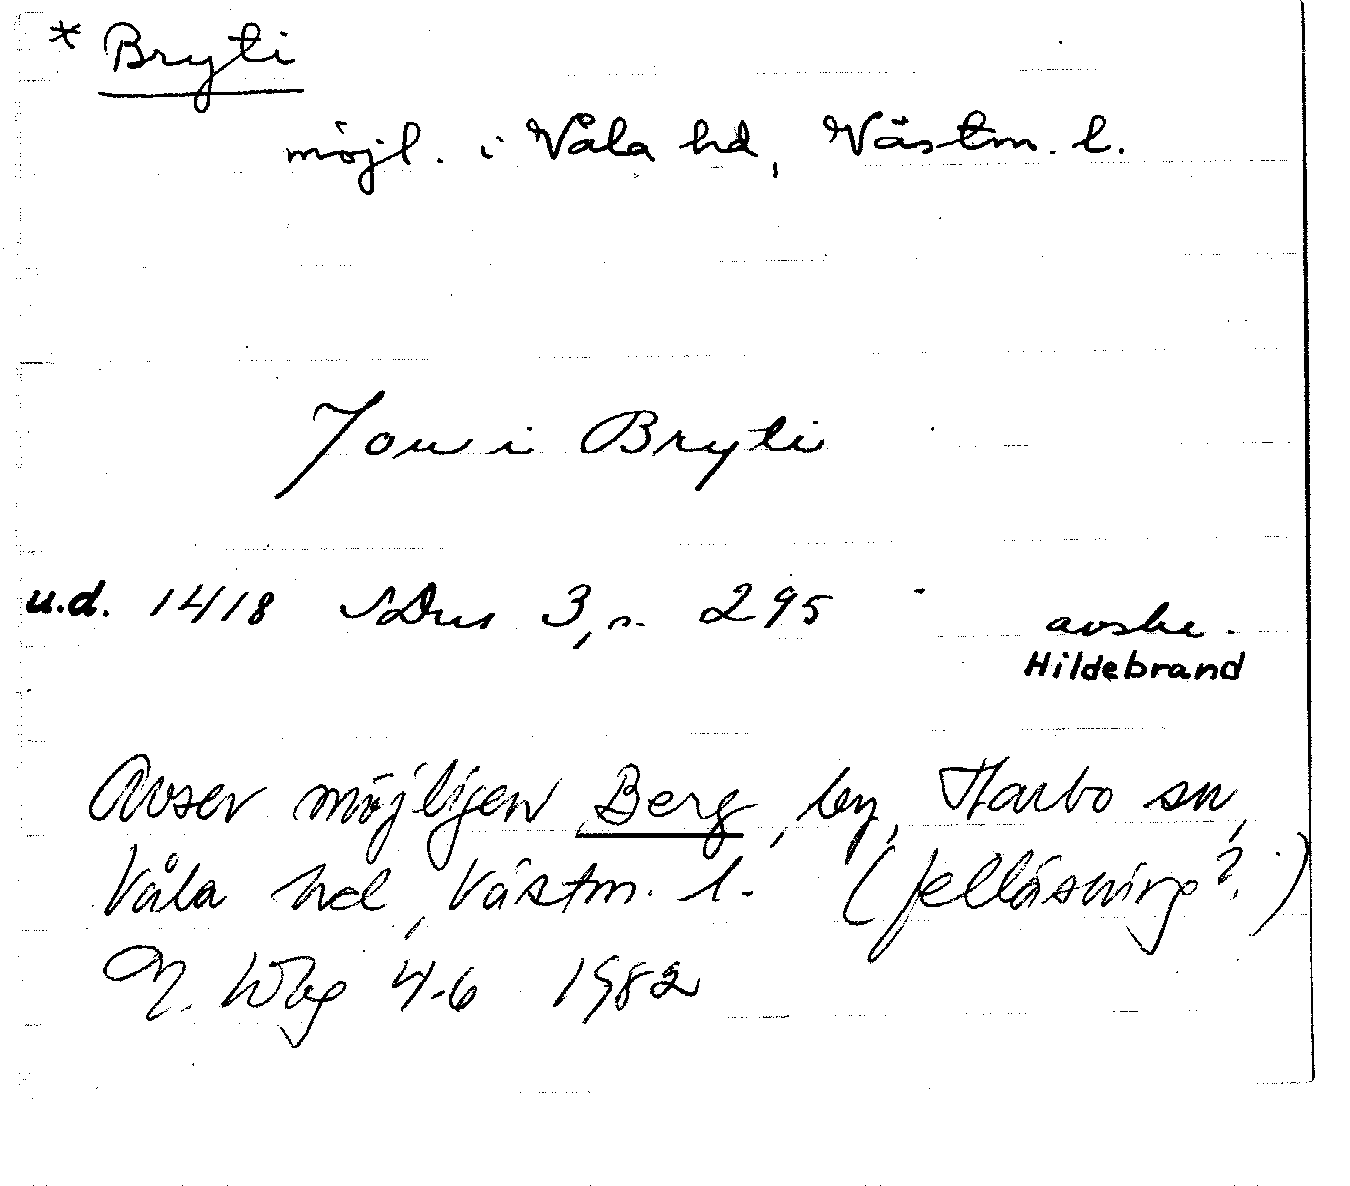 * Bryti
möjl. i Våla hd, Västm. l.
Jon i Bryti
u.d. 1418 SDns 3, s. 295 avskr.
Hildebrand
Avser möjligen Berg, by, Harbo sn,
Våla hd, Västm. l. (felläsning?)
4-6 1982